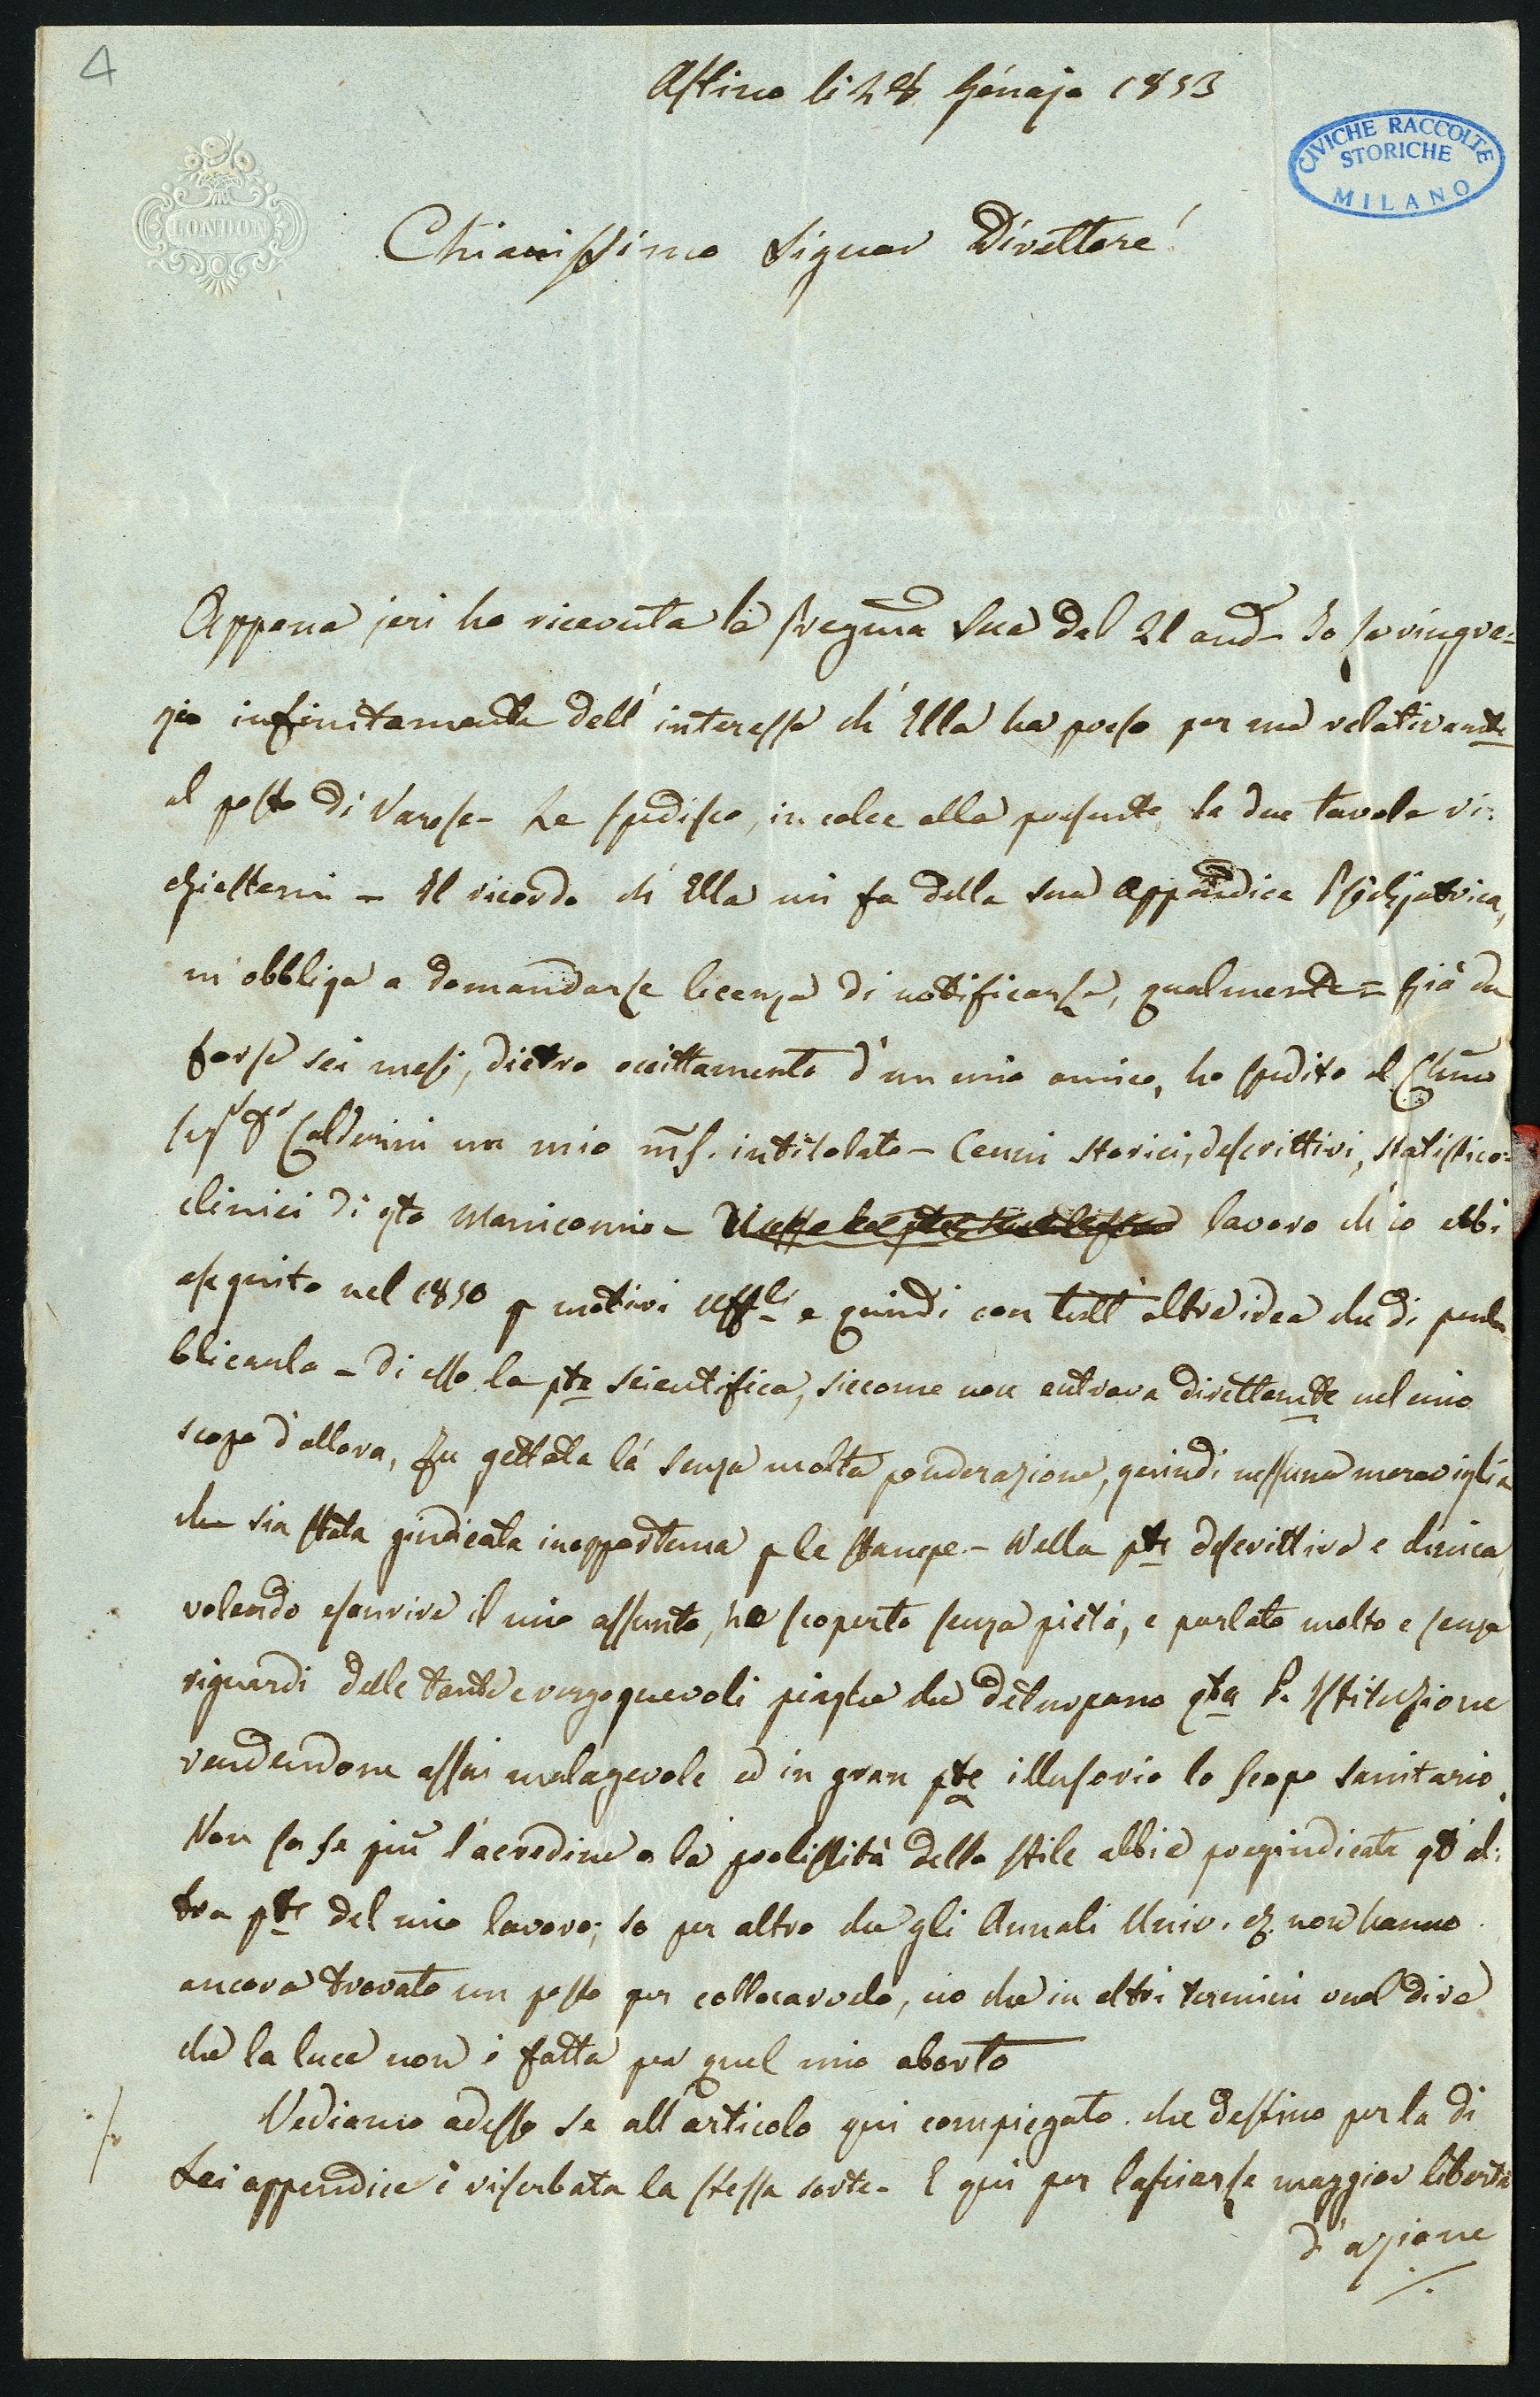 4
Astino li 28 Génajo 1853
CIVICHE RACCOLTE
STORICHE
MILANO
LONDON
Chiarissimo Signor Direttore!
Appena jeri ho ricevuta la pregma Sua del 21 and- Io La ringra=
zio infinitamente dell'interesse ch'Ella ha preso per me relativamte
al posto di Varese- Le spedisco, in calce alla presente, le due tavole ri=
chiestemi - Il ricordo ch'Ella mi fa della sua Appendice Psichjatrica,
m'obbliga a domandarle licenza di notificarle, qualmente= Già da
forse sei mesi, dietro eccittamento d'un mio amico, ho spedito al Chmo
Sigr Dr Calderini un mio ms. intitolato - Cenni storici, descrittivi, statistico=
clinici di qto Manicomio - lavoro ch'io ebbi
eseguito nel 1850 p motivi Uffli e quindi con tutt'altra idea che di pub
blicarlo - Di esso la pte scientifica, siccome non entrava direttamte nel mio
scopo d'allora, fu gettata là senza molta ponderazione, quindi nessuna meraviglia
che sia stata giudicata inopportuna p le stampe - Nella pte descrittiva e clinica,
volendo esaurire il mio assunto, ho scoperto senza pietà, e parlato molto e senza
riguardi delle tante e vergognevoli piaghe che deturpano qta P. Istituzione
rendendone assai malagevole ed in gran pte illusorio lo scopo sanitario.
Non so se più l'acredine o la prolissità dello stile abbia pregiudicata qt'al=
tra pte del mio lavoro; so per altro che gli Annali Univ. non hanno
ancora trovato un posto per collocarvelo, ciò che in altri termini vuol dire
che la luce non è fatta per quel mio aborto
Vediamo adesso se all'articolo qui compiegato che destino per la di
Lei appendice è riserbata la stessa sorte - E qui per lasciarle maggior libertà
d'azione
./.